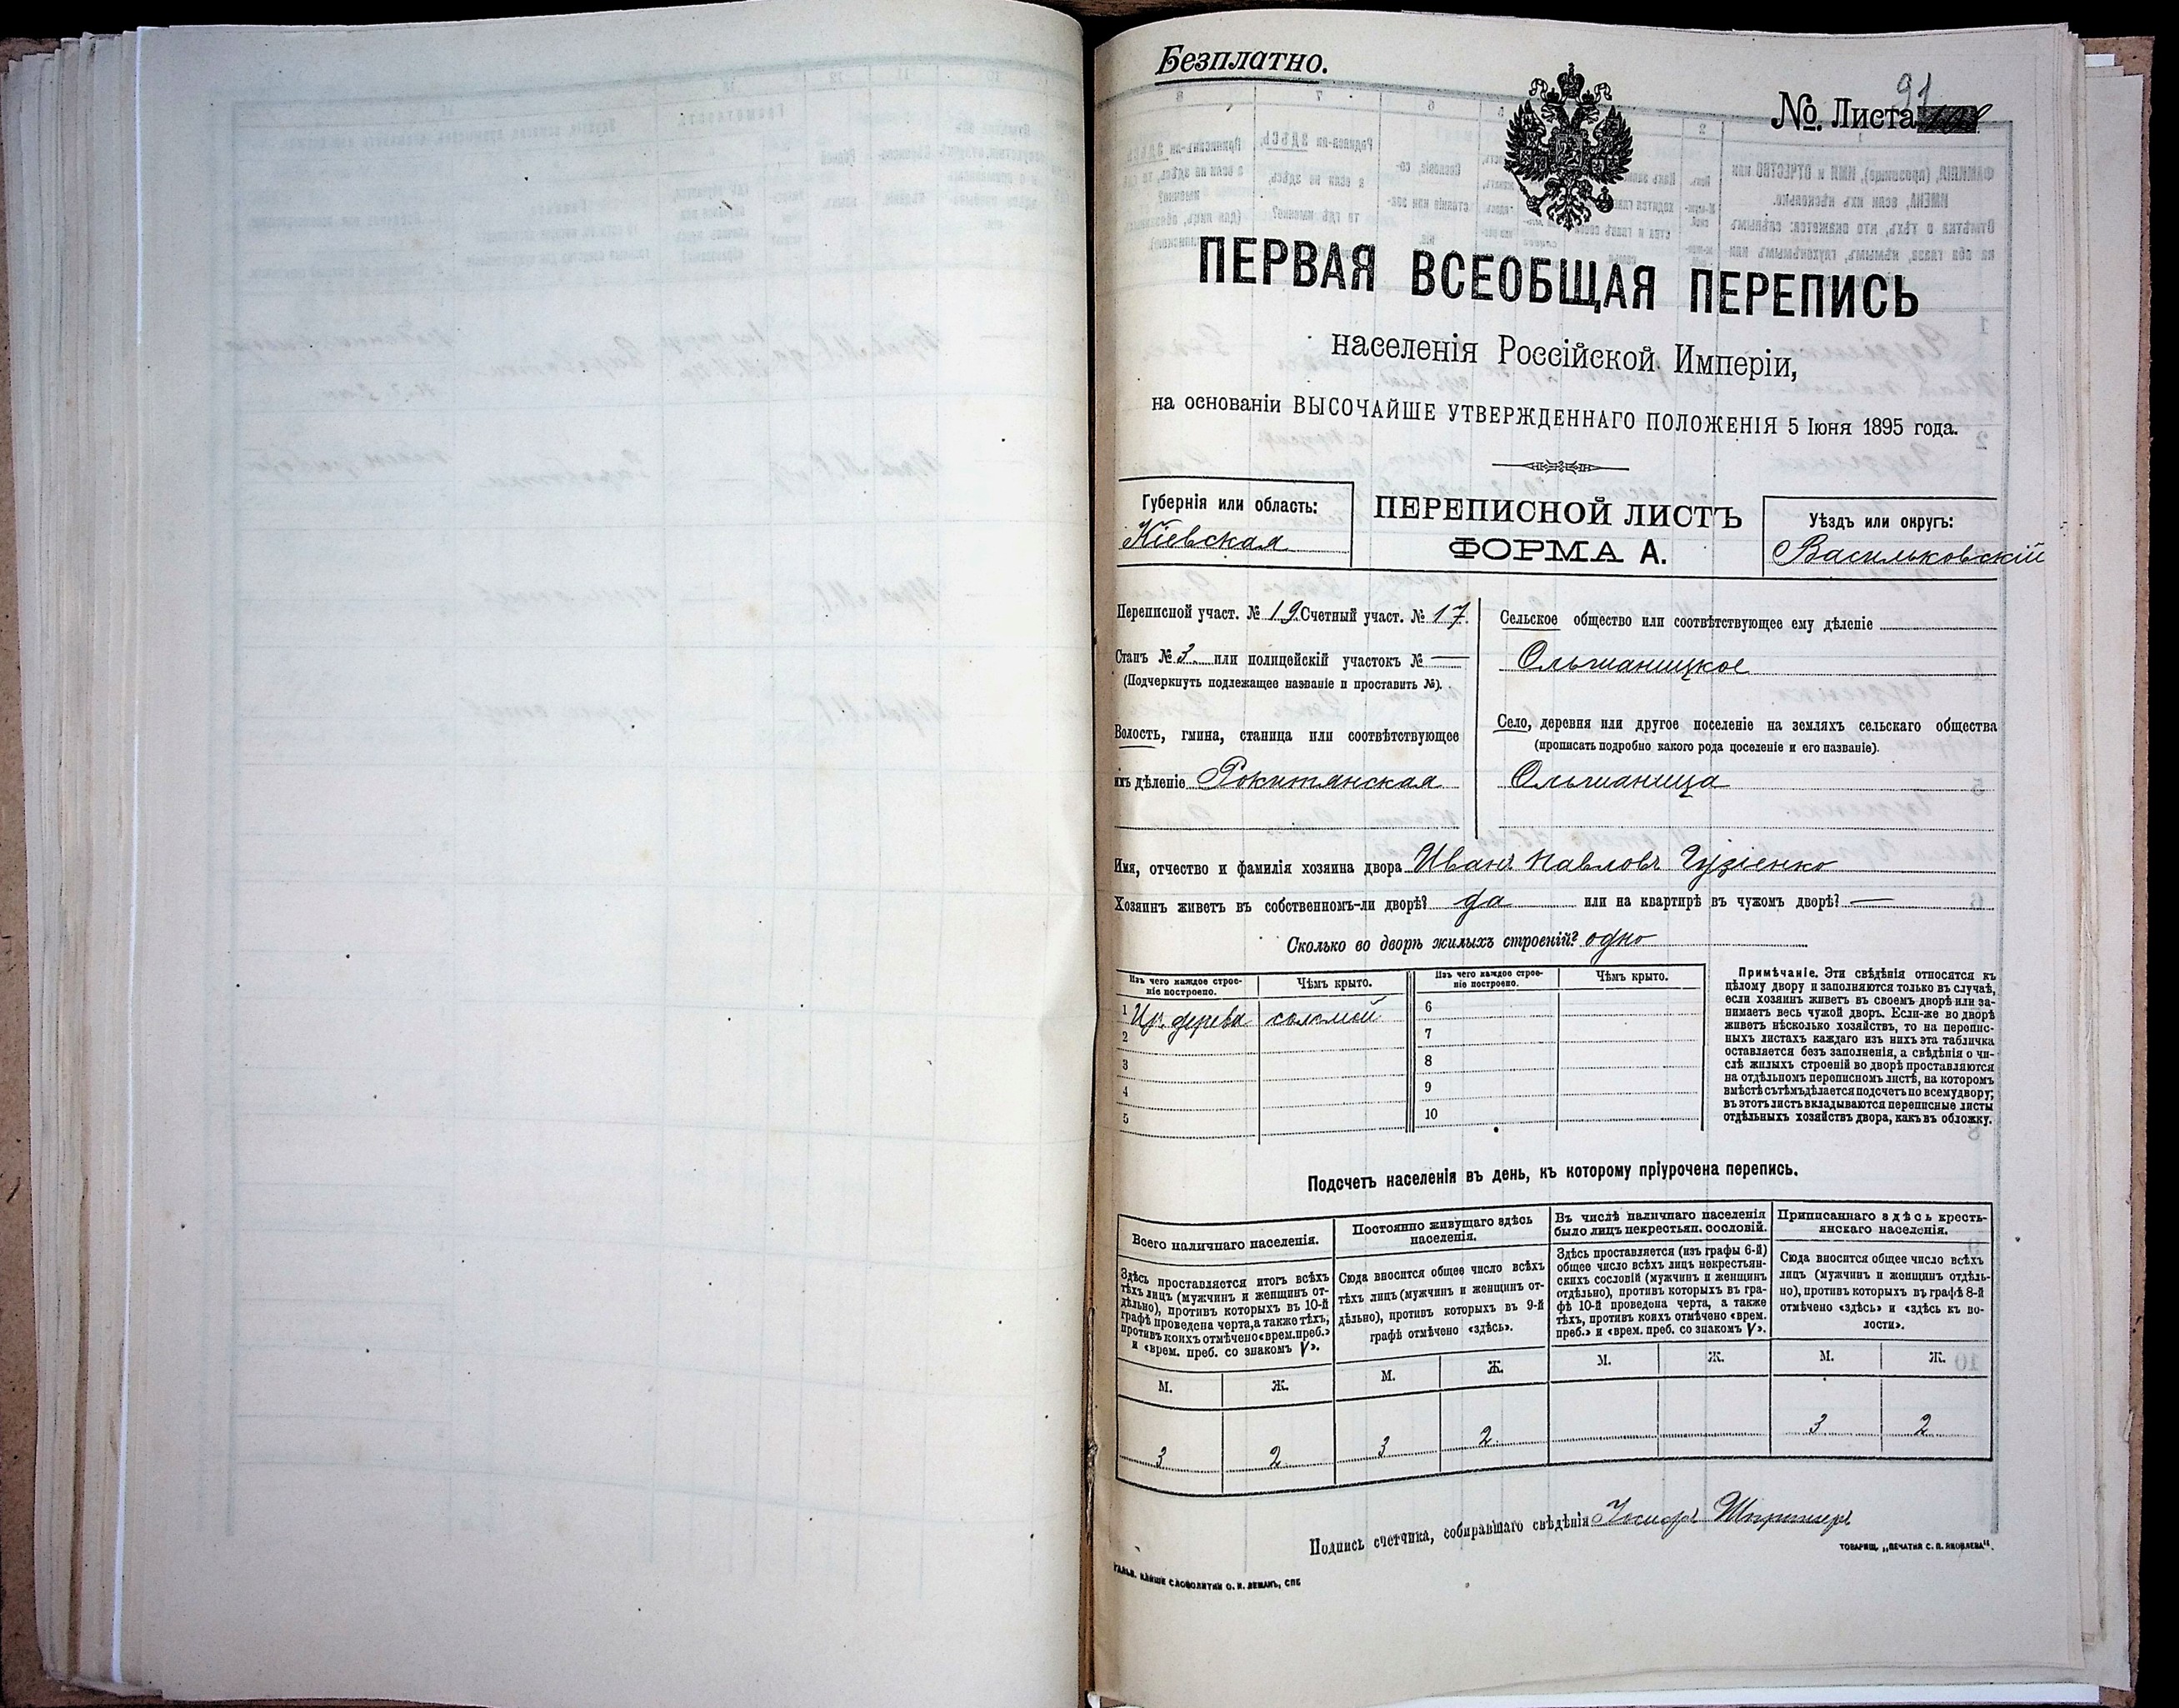 Безплатно.
№ Листа 91
ПЕРВАЯ ВСЕОБЩАЯ ПЕРЕПИСЬ
населенія Россійской Имперіи,
на основаніи ВЫСОЧАЙШЕ УТВЕРЖДЕННАГО ПОЛОЖЕНІЯ 5 Іюня 1895 года.
Губернія или область:
Кіевская
ПЕРЕПИСНОЙ ЛИСТЪ
ФОРМА А.
Уѣздъ или округъ:
Васильковскій
Переписной участ. № 19. Счетный участ. № 17.
Станъ № 3. или полицейскій участокъ № —
(Подчеркнуть подлежащее названіе и проставить №).
Волость, гмина, станица или соотвѣтствующее
имъ дѣленіе Рокитянская
Сельское общество или соотвѣтствующее ему дѣленіе
Ольшаницкое
Село, деревня или другое поселеніе на земляхъ сельскаго общества
(прописать подробно какого рода поселеніе и его названіе).
Ольшаница
Имя, отчество и фамилія хозяина двора Иванъ Павловъ Гузіенко
Хозяинъ живетъ въ собственномъ-ли дворѣ? да или на квартирѣ въ чужомъ дворѣ? —
Сколько во дворѣ жилыхъ строеній? одно
Изъ чего каждое строе-
ніе построено.
Чѣмъ крыто.
Изъ чего каждое строе-
ніе построено.
Чѣмъ крыто.
1 Из. дерева соломой
2
3
4
5
6
7
8
9
10
Примѣчаніе. Эти свѣдѣнія относятся къ
цѣлому двору и заполняются только въ случаѣ,
если хозяинъ живетъ въ своемъ дворѣ или за-
нимаетъ весь чужой дворъ. Если-же во дворѣ
живетъ нѣсколько хозяйствъ, то на перепис-
ныхъ листахъ каждаго изъ нихъ эта табличка
оставляется безъ заполненія, а свѣдѣнія о чи-
слѣ жилыхъ строеній во дворѣ проставляются
на отдѣльномъ переписномъ листѣ, на которомъ
вмѣстѣ съ тѣмъ дѣлается подсчетъ по всему двору;
въ этотъ листъ вкладываются переписные листы
отдѣльныхъ хозяйствъ двора, какъ въ обложку.
Подсчетъ населенія въ день, къ которому пріурочена перепись.
Всего наличнаго населенія.
Здѣсь проставляется итогъ всѣхъ
тѣхъ лицъ (мужчинъ и женщинъ от-
дѣльно), противъ которыхъ въ 10-й
графѣ проведена черта, а также тѣхъ,
противъ коихъ отмѣчено «врем. преб.»
и «врем. преб. со знакомъ V».
М. Ж.
3 2
Постоянно живущаго здѣсь
населенія.
Сюда вносится общее число всѣхъ
тѣхъ лицъ (мужчинъ и женщинъ от-
дѣльно), противъ которыхъ въ 9-й
графѣ отмѣчено «здѣсь».
М. Ж.
3 2
Въ числѣ наличнаго населенія
было лицъ некрестьян. сословій.
Здѣсь проставляется (изъ графы 6-й)
общее число всѣхъ лицъ некрестьян-
скихъ сословій (мужчинъ и женщинъ
отдѣльно), противъ которыхъ въ гра-
фѣ 10-й проведена черта, а также
тѣхъ, противъ коихъ отмѣчено «врем.
преб.» и «врем. преб. со знакомъ V».
М. Ж.
Приписаннаго здѣсь кресть-
янскаго населенія.
Сюда вносится общее число всѣхъ
лицъ (мужчинъ и женщинъ отдѣль-
но), противъ которыхъ въ графѣ 8-й
отмѣчено «здѣсь» и «здѣсь къ во-
лости».
М. Ж.
3 2
Подпись счетчика, собиравшаго свѣдѣнія
ТОВАРИЩ. „ПЕЧАТНЯ С. П. ЯКОВЛЕВА“.
СЛОВОЛИТНИ О. И. ЛЕМАНЪ, СПБ